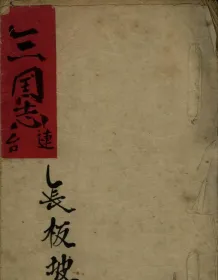 三国志
連台
長板坡